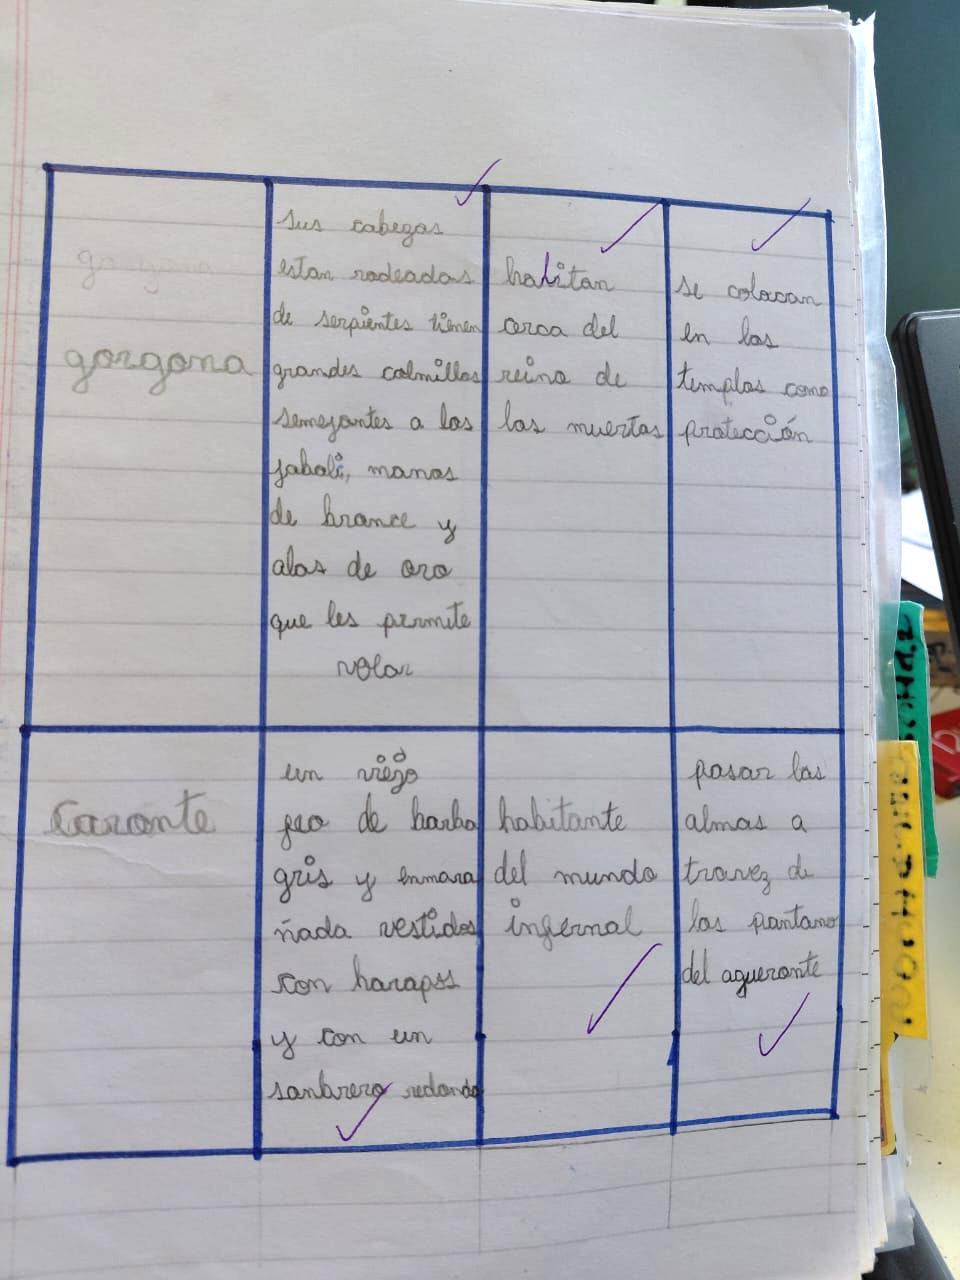 gorgona
gorgona
sus cabezas
estan rodeadas
de serpientes tienen
grandes colmillos
semejantes a los
jabali, manos
de bronce y
alas de oro
que les permite
volar
habitan
cerca del
reino de
los muertos
se colocan
en los
templos como
protección
Caronte
un viejo
feo de barba
gris y enmara
ñada vestidos
con harapos
y con un
sonbrero redondo
habitante
del mundo
infernal
pasar las
almas a
travez de
los pantano
del aqueronte